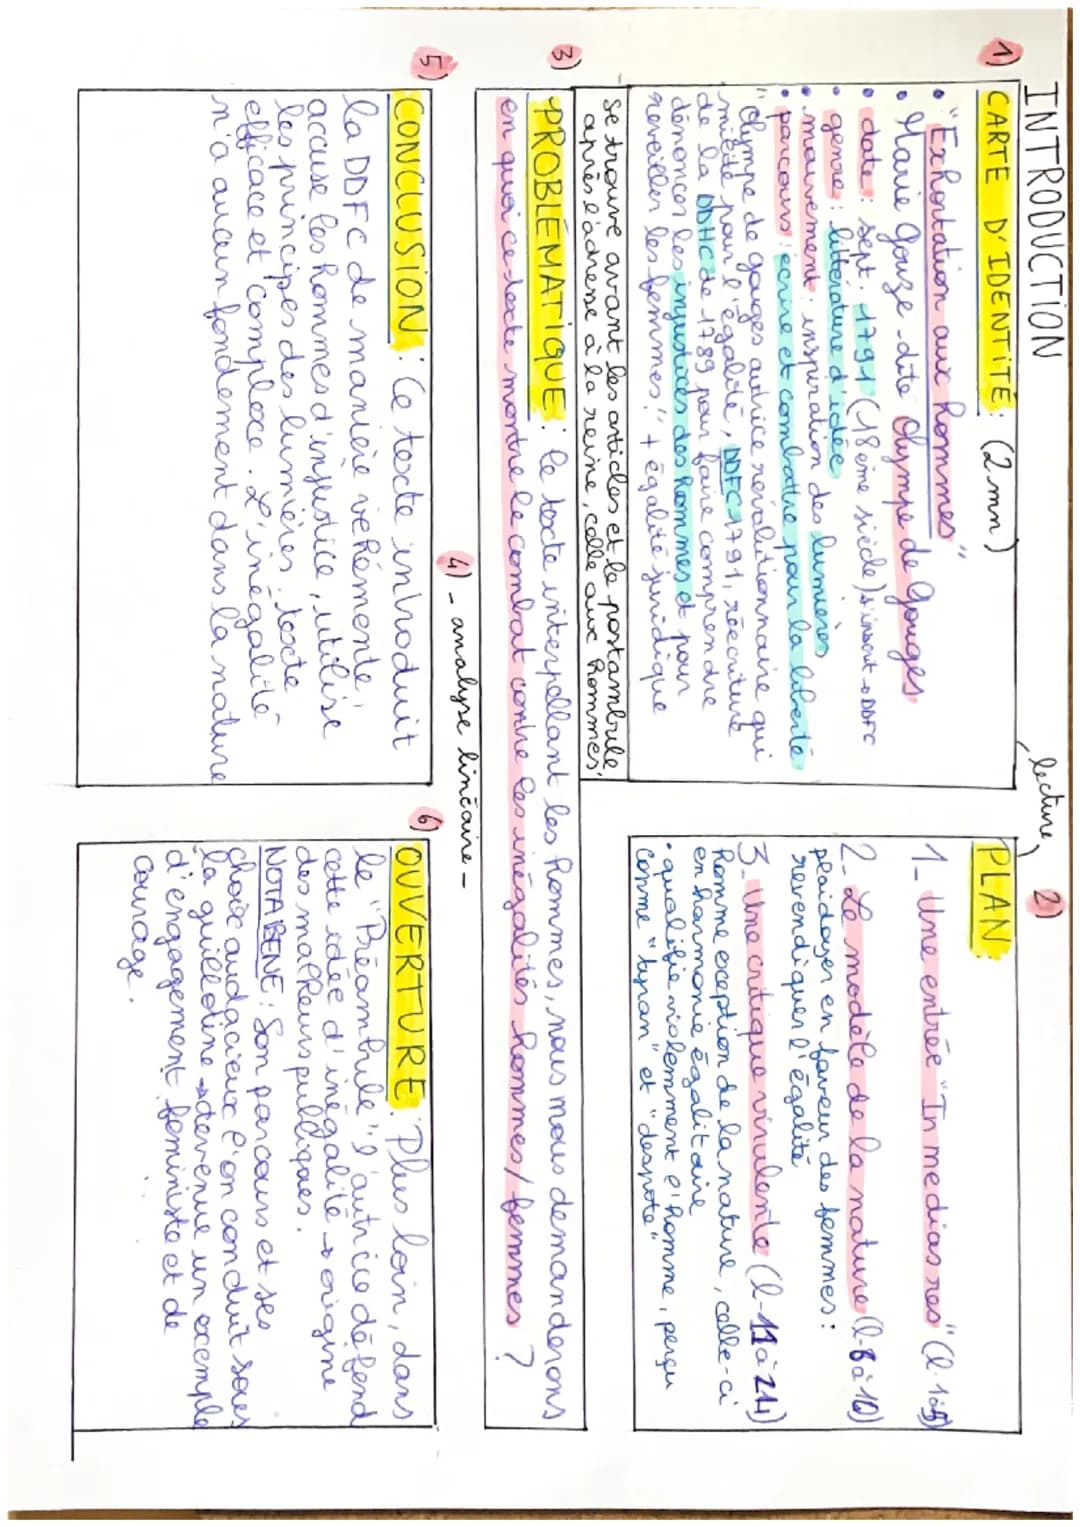 INTRODUCTION
1) CARTE D'IDENTITÉ: (2 mn)
• "Exhortation aux hommes"
• Marie Gouze dite Olympe de Gouges
• date: sept. 1791 (18ème siècle) s'inscrit → DDFC
• genre: littérature d'idée
• mouvement: inspiration des lumières
• parcours: écrire et combattre pour la liberté
"Olympe de gouges autrice revolutionnaire qui
milité pour l'égalité, DDFC 1791, réécriture
de la DDHC de 1789 pour faire comprendre
dénoncer les injustices des hommes et pour
reveiller les femmes." + égalité juridique
se trouve avant les articles et le postambule,
après l'adresse à la reine, celle aux hommes.
lecture,
2) PLAN:
1_ Une entrée "In medias res" (l.1à5)
2_ Le modèle de la nature (l-6 à 10)
plaidoyer en faveur des femmes:
revendiquer l'égalité
3_ Une critique virulente (l-11 à 24)
homme exception de la nature, celle-ci
en harmonie égalitaire
• qualifie violemment l'homme, perçu
comme "tyran" et "despote"
3) PROBLÉMATIQUE: le texte interpellant les hommes, nous nous demanderons
en quoi ce texte montre le combat contre les inégalités hommes/femmes ?
4) _ analyse linéaire _
5) CONCLUSION: Ce texte introduit
la DDFC de manière véhémente,
accuse les hommes d'injustice, utilise
les principes des lumières. texte
efficace et complexe. L'inégalité
n'a aucun fondement dans la nature
6) OUVERTURE: Plus loin, dans
le "Préambule" l'autrice défend
cette idée d'inégalité → origine
des malheurs publiques.
NOTABENE: Son parcours et ses
choix audacieux l'on conduit sous
la guillotine → devenue un exemple
d'engagement féministe et de
courage.